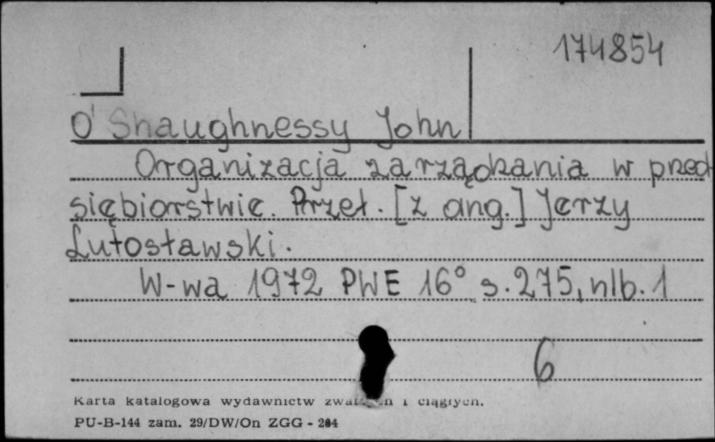 174854
O'Shaughnessy John
Organizacja zarządzania w przed
siębiorstwie. Przeł. [z ang.] Jerzy
Lutosławski.
W-wa 1972 PWE 16° s. 275, nlb. 1
6
Karta katalogowa wydawnictw i ciągłych.
PU-B-144 zam. 29/DW/On ZGG - 284